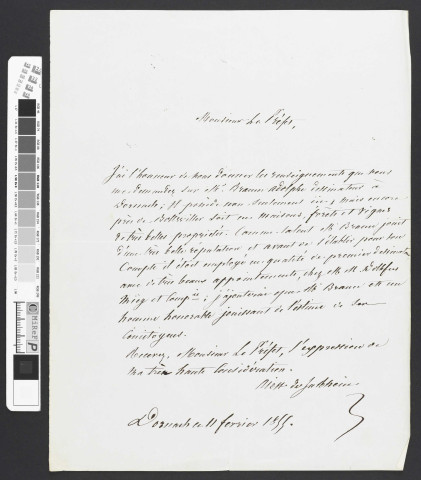 Monsieur Le Préfet,
J'ai l'honneur de vous donner les renseignements que vous
me demandez sur Mr. Braun Adolphe dessinateur à
Dornach; Il possède non seulement ici, mais encore
près de Bollwiller soit en maisons, forêts et vignes
de très belles propriétés. Comme talent Mr Braun jouit
d'une très belle réputation et avant de s'établir pour son
Compte il était employé en qualité de premier dessinateur
avec de très beaux appointements, chez M.M. Dollfus
Mieg et Comp.ie; j'ajouterai que Mr Braun est un
homme honorable jouissant de l'estime de ses
Concitoyens.
Recevez, Monsieur Le Préfet, l'expression de
ma très haute Considération.
Dornach ce 11 février 1855.